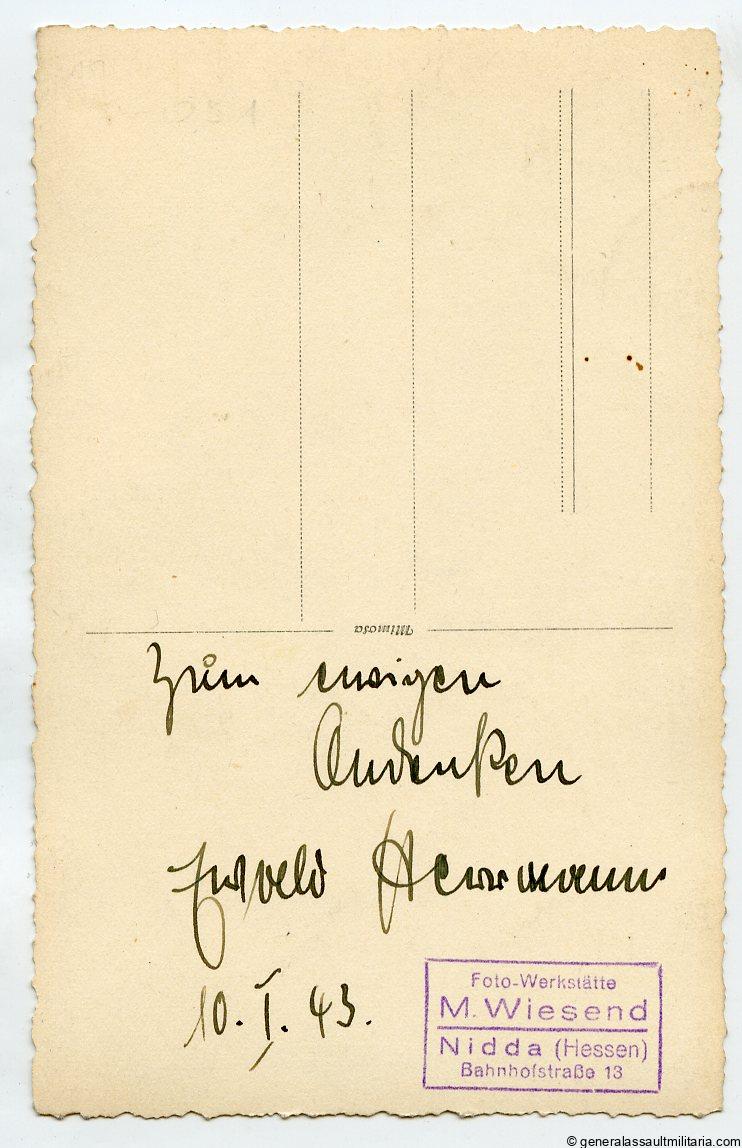 Mimosa
Zum ewigen
Andenken
Ewald Herrmann
10. I. 43.
Foto-Werkstätte
M. Wiesend
Nidda (Hessen)
Bahnhofstraße 13
© generalassaultmilitaria.com